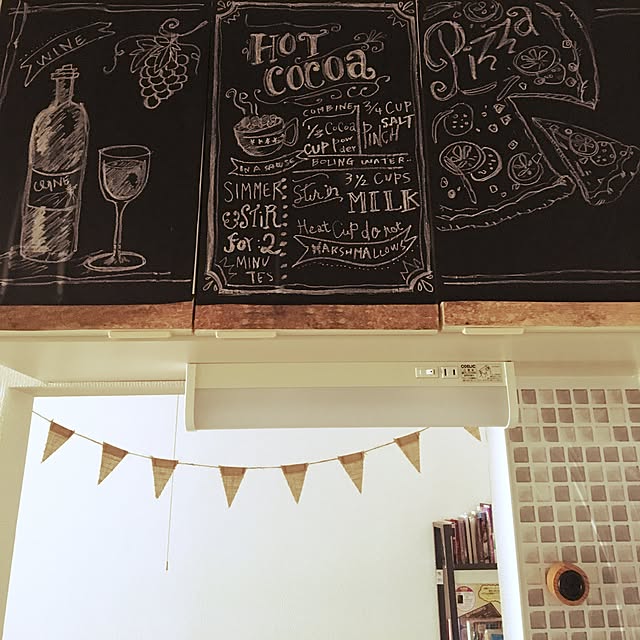 WINE
HOT
COCOA
COMBINE
1/3 COCOA
CUP POW
der
3/4 CUP
SALT
PINCH
IN A
BOLING WATER..
SIMMER
&STIR
for 2
MINU
TES
Stir in
3 1/2 CUPS
MILK
Heat Cup do not
MARSHMALLOWS
Pizza